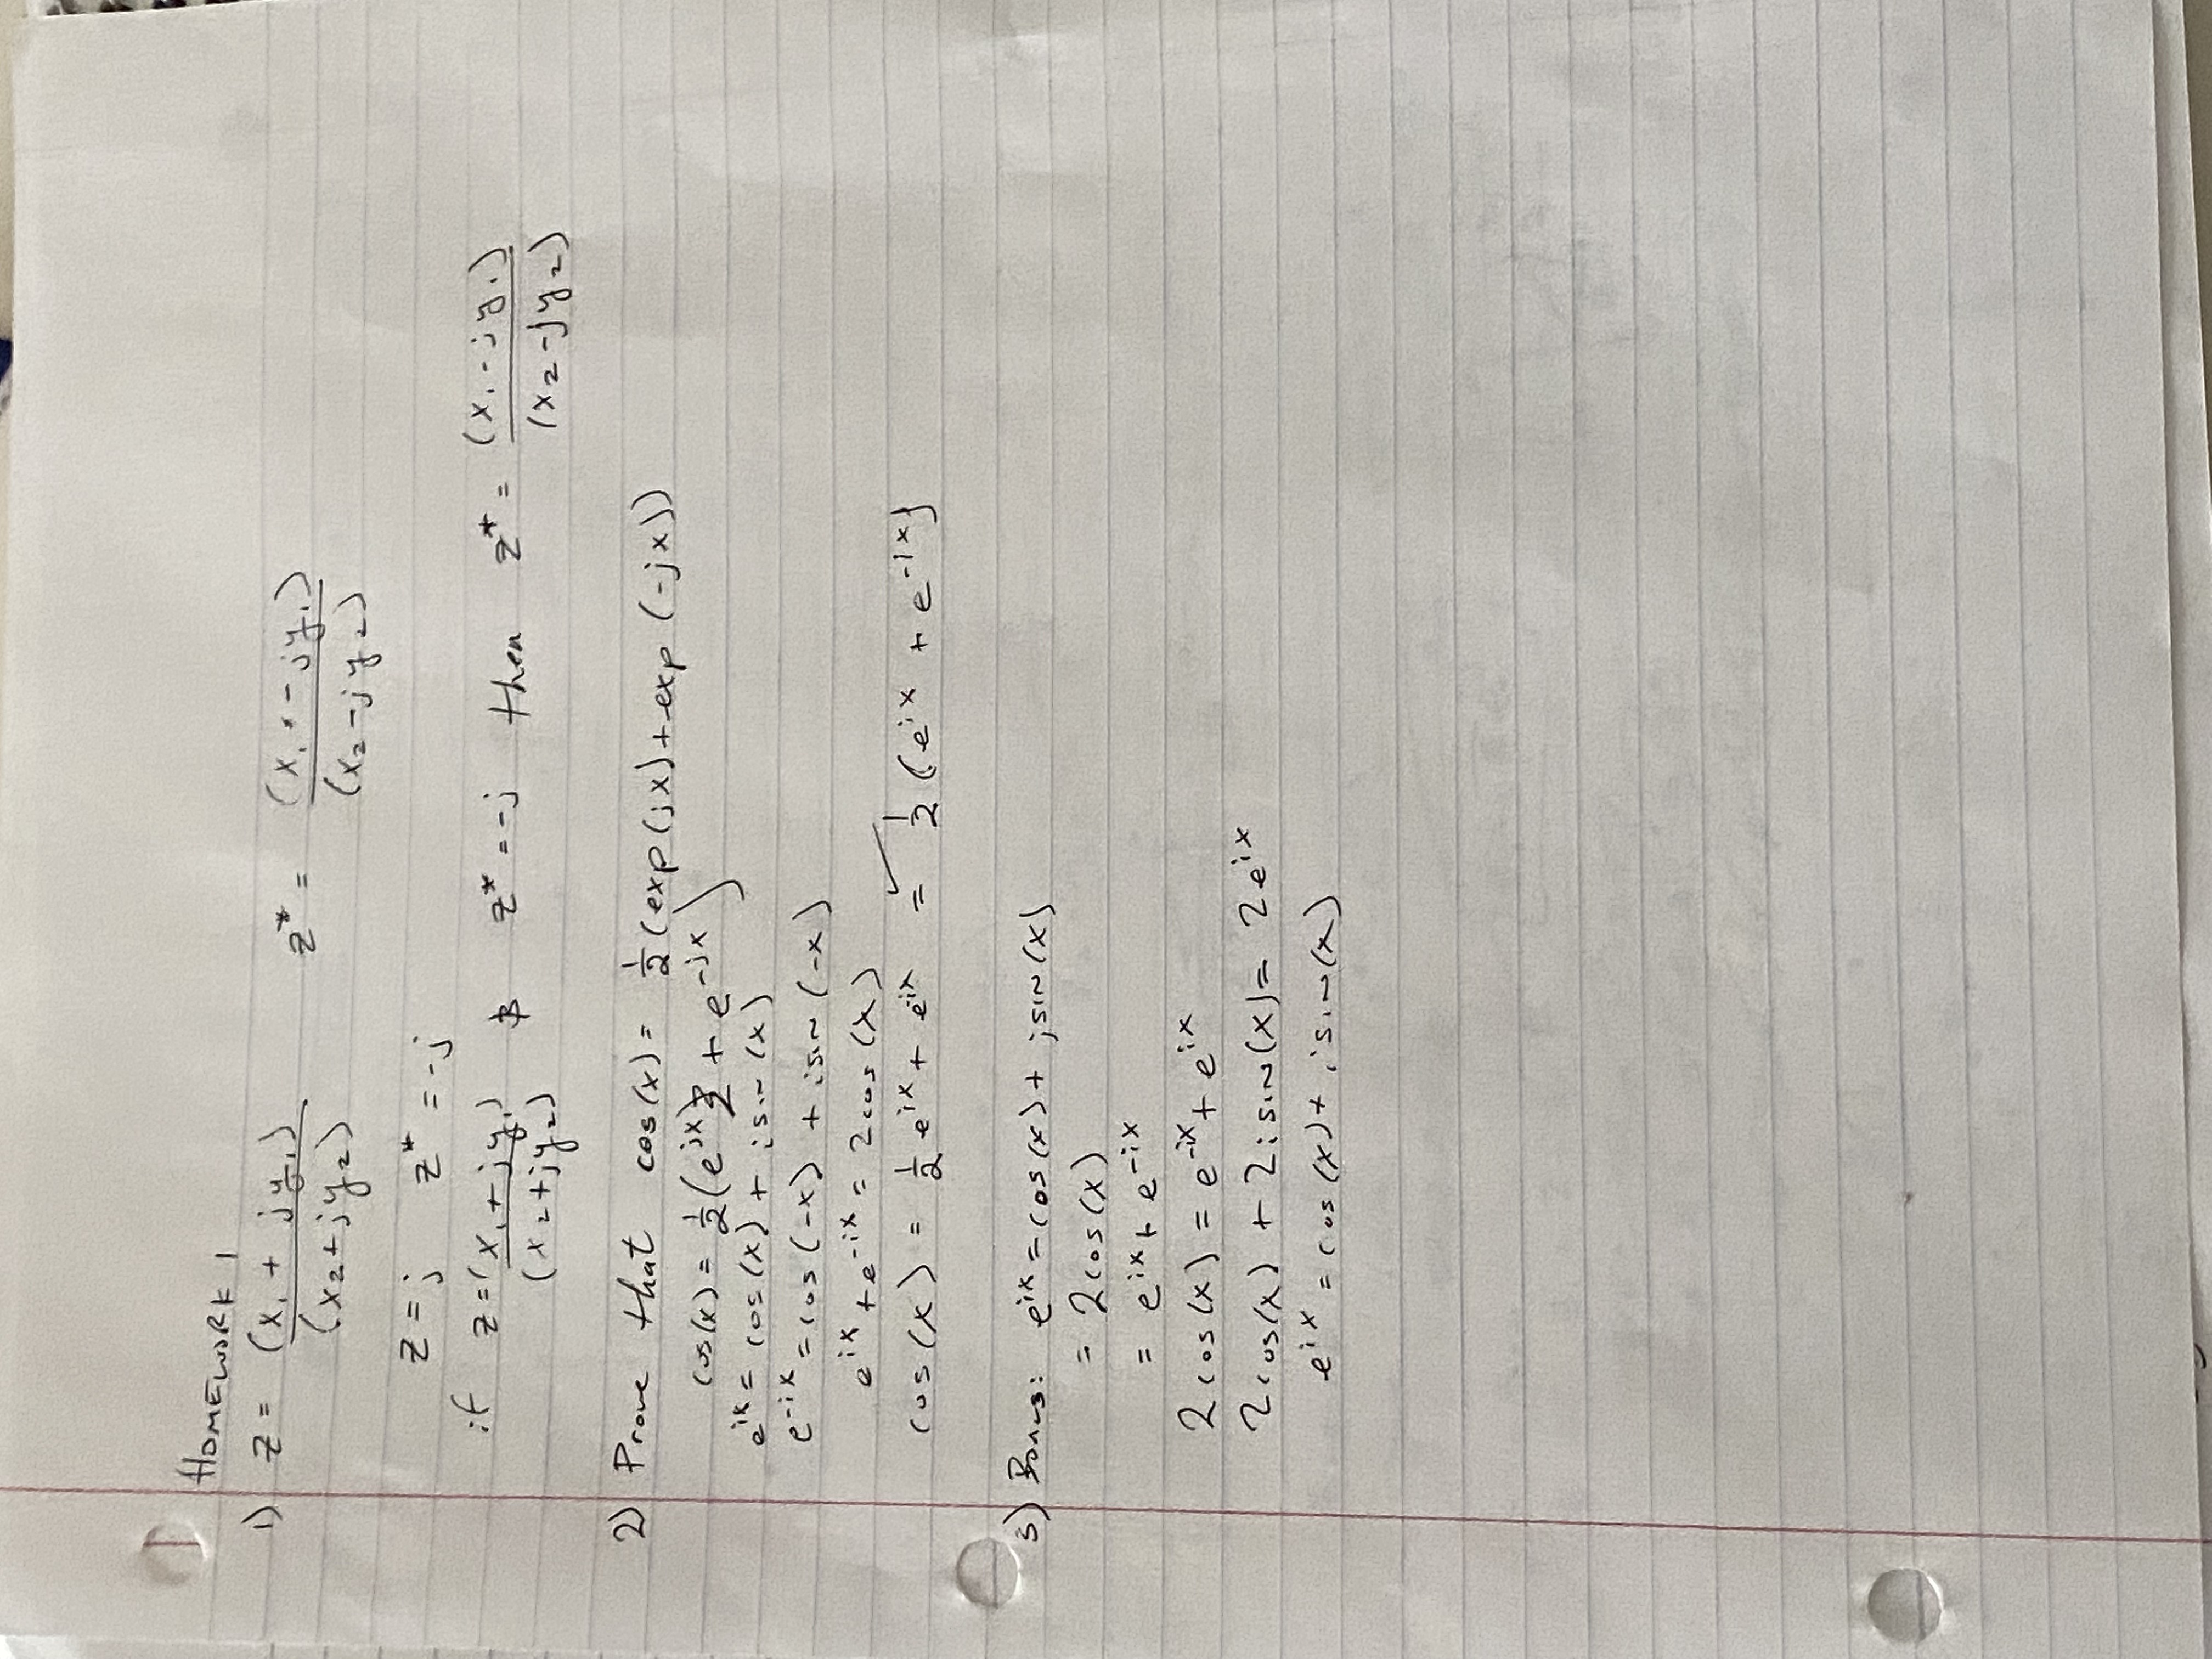 HOMEWORK 1
1) z = (x₁ + jy₁) / (x₂+jy₂)    z* = (x₁ - jy₁) / (x₂-jy₂)
z = j    z* = -j
if z = (x₁+jy₁) / (x₂+jy₂) & z* = -j then z* = (x₁-jy₁) / (x₂-jy₂)
2) Prove that cos(x) = 1/2 (exp(jx)+exp(-jx))
cos(x) = 1/2 (e^jx + e^-jx)
e^ix = cos(x) + isin(x)
e^-ix = cos(-x) + isin(-x)
e^ix + e^-ix = 2cos(x)
cos(x) = 1/2 e^ix + e^-ix =✓ 1/2 (e^ix + e^-ix)
3) Bonus: e^ix = cos(x) + jsin(x)
= 2cos(x)
= e^ix + e^-ix
2cos(x) = e^-ix + e^ix
2cos(x) + 2isin(x) = 2e^ix
e^ix = cos(x) + isin(x)